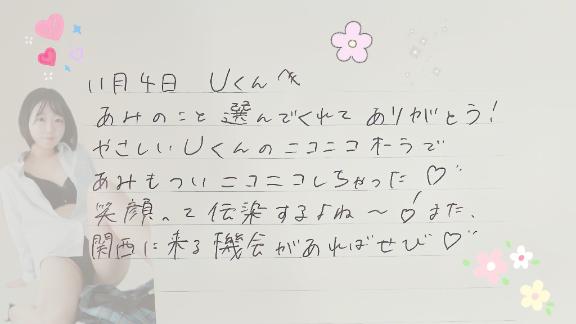 11月4日 Uくんへ
あみのこと選んでくれてありがとう!
やさしいUくんのニコニコオーラで
あみもついニコニコしちゃった♡
笑顔って伝染するよね〜♡!また、
関西に来る機会があればぜひ♡